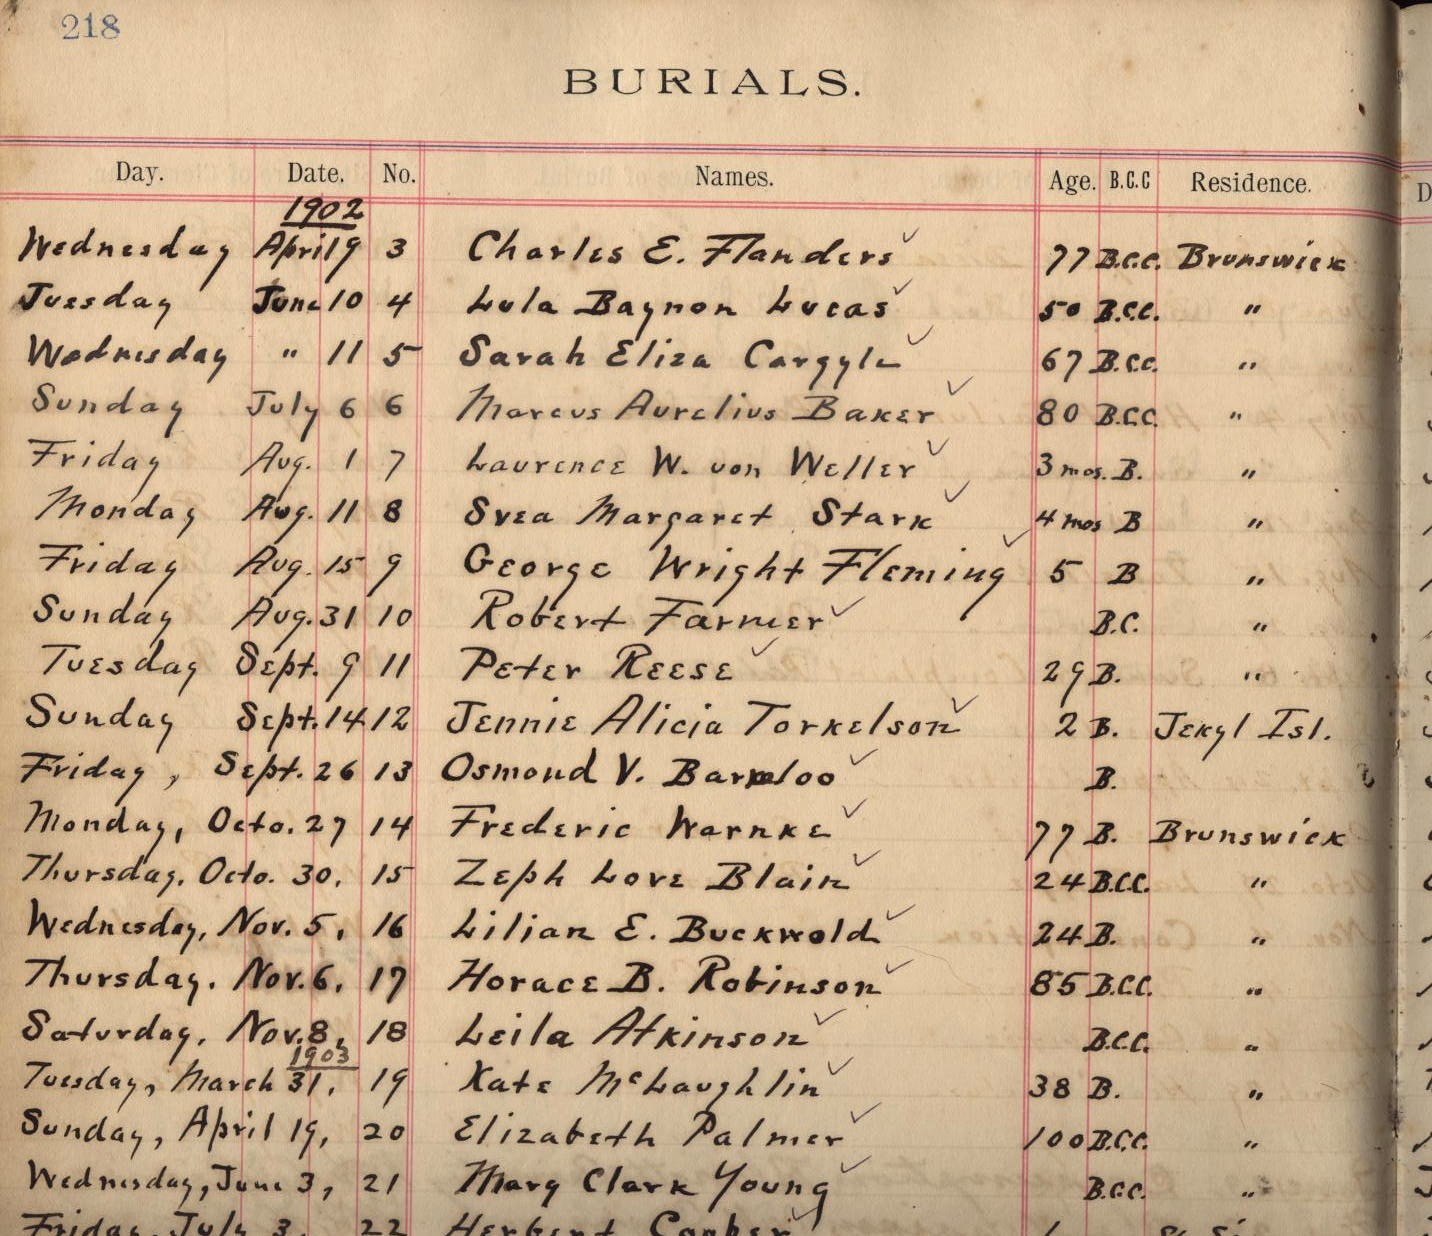 218
BURIALS.
Day. Date. No. Names. Age. B.C.C Residence.
1902
Wednesday April 9 3 Charles E. Flanders 77 B.C.C. Brunswick
Tuesday June 10 4 Lula Baynon Lucas 50 B.C.C. "
Wednesday " 11 5 Sarah Eliza Cargyle 67 B.C.C. "
Sunday July 6 6 Marcus Aurelius Baker 80 B.C.C. "
Friday Aug. 1 7 Laurence W. von Weller 3 mos. B. "
Monday Aug. 11 8 Svea Margaret Stark 4 mos B "
Friday Aug. 15 9 George Wright Fleming 5 B "
Sunday Aug. 31 10 Robert Farmer B.C. "
Tuesday Sept. 9 11 Peter Reese 29 B. "
Sunday Sept. 14 12 Jennie Alicia Torkelson 2 B. Jekyl Isl.
Friday, Sept. 26 13 Osmond V. B.
Monday, Octo. 27 14 Frederic Warnke 77 B. Brunswick
Thursday, Octo. 30, 15 Zeph Love Blain 24 B.C.C. "
Wednesday, Nov. 5, 16 Lilian E. Buckwold 24 B. "
Thursday. Nov. 6, 17 Horace B. Robinson 85 B.C.C. "
Saturday, Nov. 8, 18 Leila Atkinson B.C.C. "
1903
Tuesday, March 31, 19 Kate McLaughlin 38 B. "
Sunday, April 19, 20 Elizabeth Palmer 100 B.C.C. "
Wednesday, June 3, 21 Mary Clark Young B.C.C. "
Friday, July 3, 22 Herbert Cooper